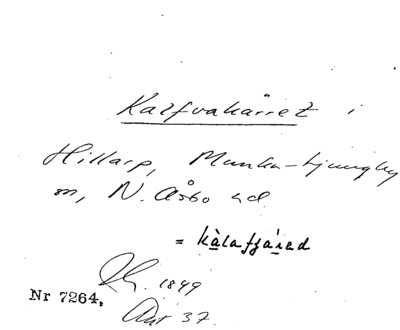 Kalfvakärret i
Hillarp, Munka-Ljungby
sn, N. Åsbo hd
= kàlafjǽred
1849
Nr 7264, Akt 37.